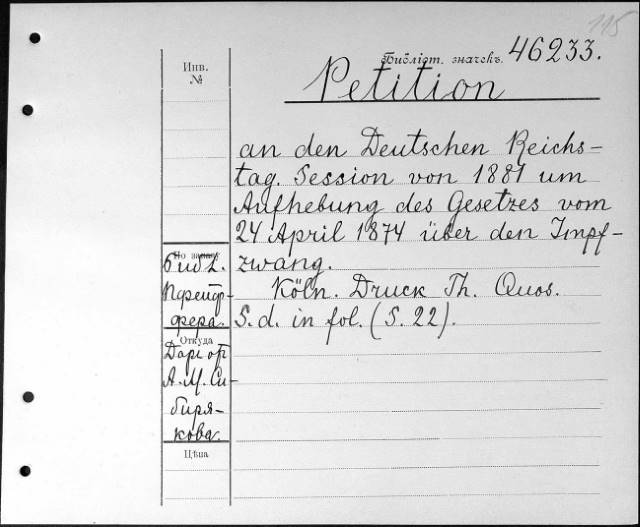 115
Библіот. значекъ. 46233.
Инв.
№
Petition
an den Deutschen Reichs-
tag. Session von 1881 um
Aufhebung des Gesetzes vom
24 April 1874 über den Impf-
zwang.
Köln. Druck Th. Quos.
S. d. in fol. (S. 22).
По заказу
Библ.
Пфейф-
фера.
Откуда
Даръ от
А. М. Си-
биря-
кова.
Цѣна